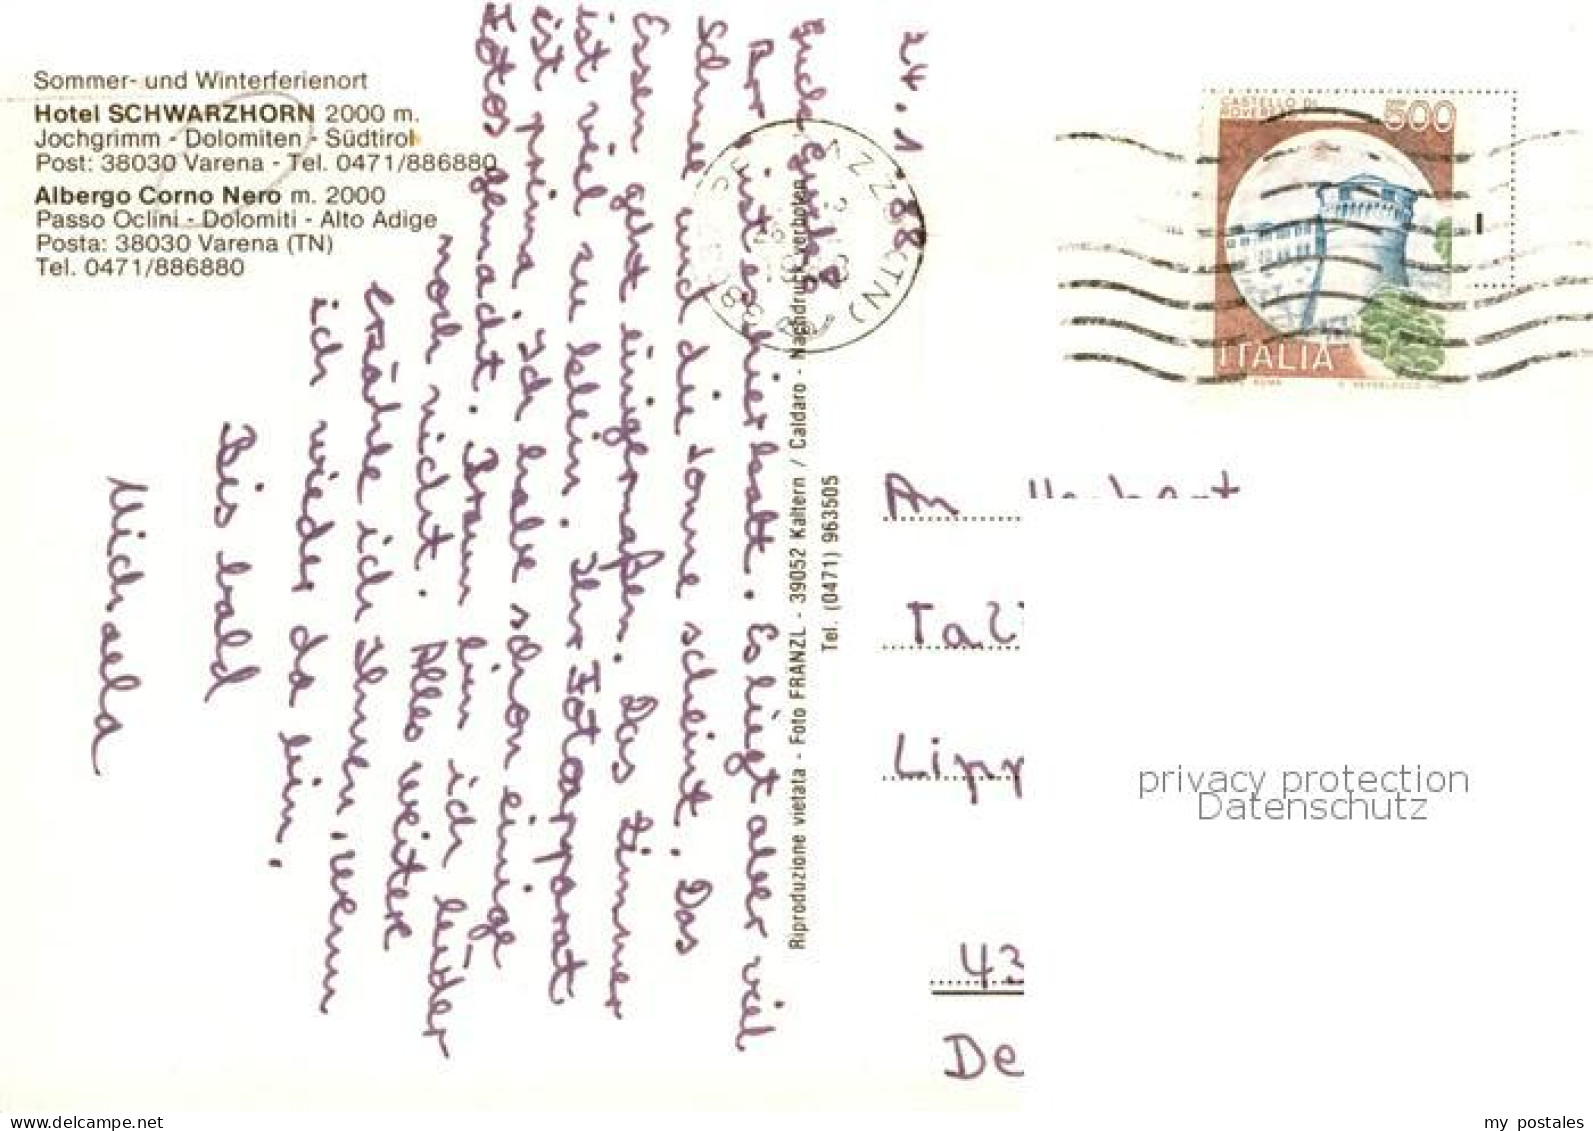 Sommer- und Winterferienort
Hotel SCHWARZHORN 2000 m.
Jochgrimm - Dolomiten - Südtirol
Post: 38030 Varena - Tel. 0471/886880
Albergo Corno Nero m. 2000
Passo Oclini - Dolomiti - Alto Adige
Posta: 38030 Varena (TN)
Tel. 0471/886880
24.1.88
Brr ist es hier kalt. Es liegt aber viel
Schnee und die Sonne scheint. Das
Essen geht einigermaßen. Das Zimmer
ist viel zu klein. Ihr Fotoapparat
ist prima. Ich habe schon einige
Fotos gemacht. Braun bin ich leider
noch nicht. Alles weitere
erzähle ich Ihnen, wenn
ich wieder da bin.
Bis bald
Michaela
Riproduzione vietata - Foto FRANZL - 39052 Kaltern / Caldaro - Nachdruck verboten
Tel. (0471) 963505
CASTELLO DI
ROVERETO
500
ITALIA
An
Lipp
43
De
privacy protection
Datenschutz
my postales